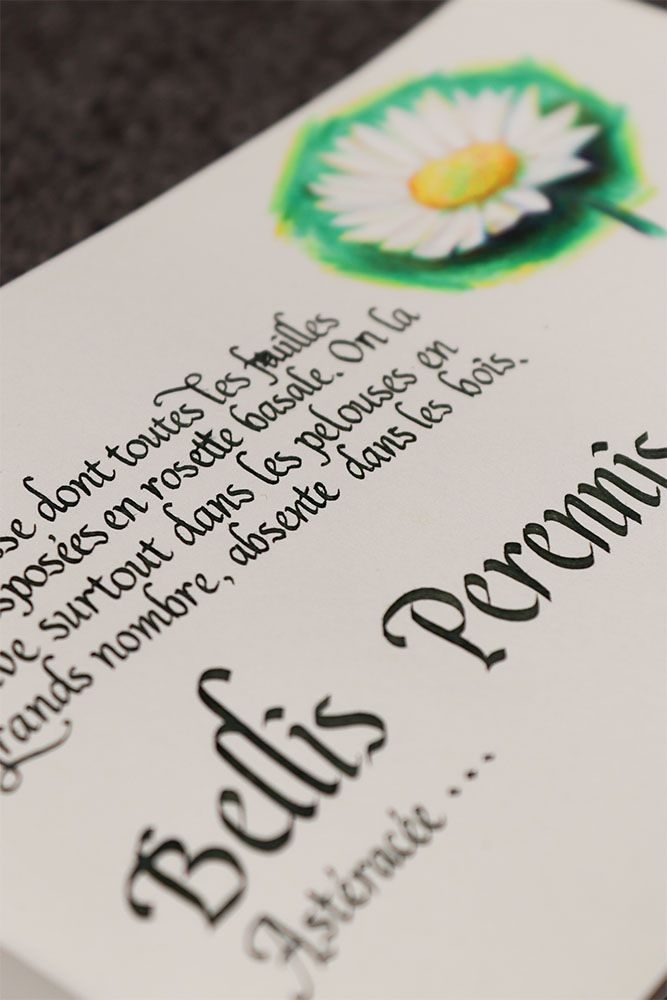 se dont toutes les feuilles
sposées en rosette basale. On la
ve surtout dans les pelouses en
grands nombre, absente dans les bois.
Bellis Perennis
Astéracée ...